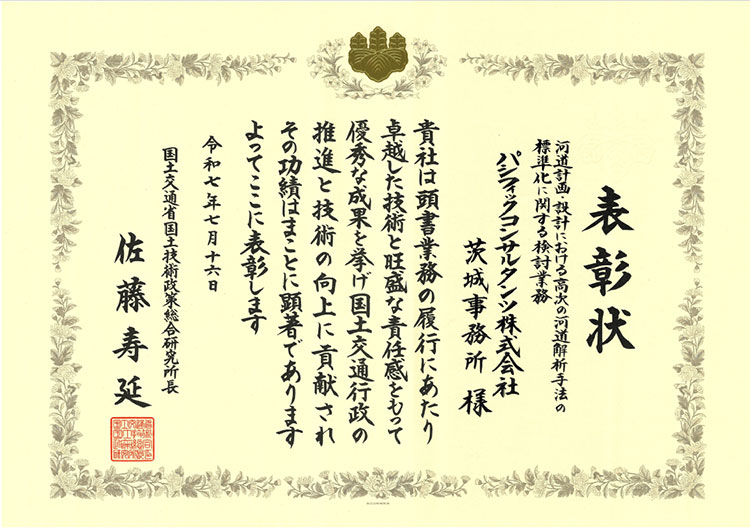 表彰状
河道計画・設計における高次の河道解析手法の
標準化に関する検討業務
パシフィックコンサルタンツ株式会社
茨城事務所 様
貴社は頭書業務の履行にあたり
卓越した技術と旺盛な責任感をもって
優秀な成果を挙げ国土交通行政の
推進と技術の向上に貢献され
その功績はまことに顕著であります
よってここに表彰します
令和七年七月十六日
国土交通省国土技術政策総合研究所長
佐藤寿延